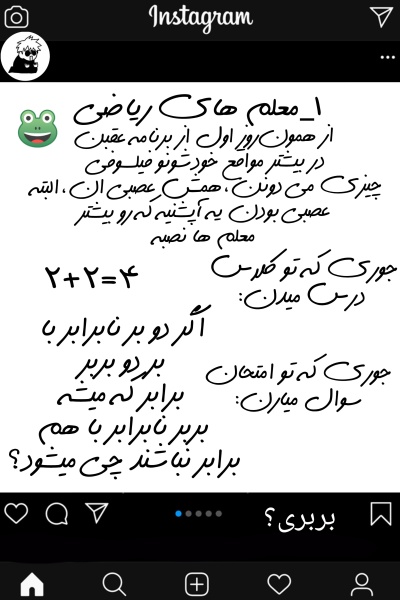 Instagram
۱_معلم های ریاضی
از همون روز اول از برنامه عقبن
در بیشتر مواقع خودشونو فیلسوفی
چیزی می دونن ، همش عصبی ان ، البته
عصبی بودن یه آپشنیه که رو بیشتر
معلم ها نصبه
جوری که تو کلاس
درس میدن:
۲+۲=۴
جوری که تو امتحان
سوال میارن:
اگر دو بر نابرابر با
بر دو بربر
برابر له میشه
بربر نابرابر با هم
برابر نباشند چی میشود؟
بربری؟